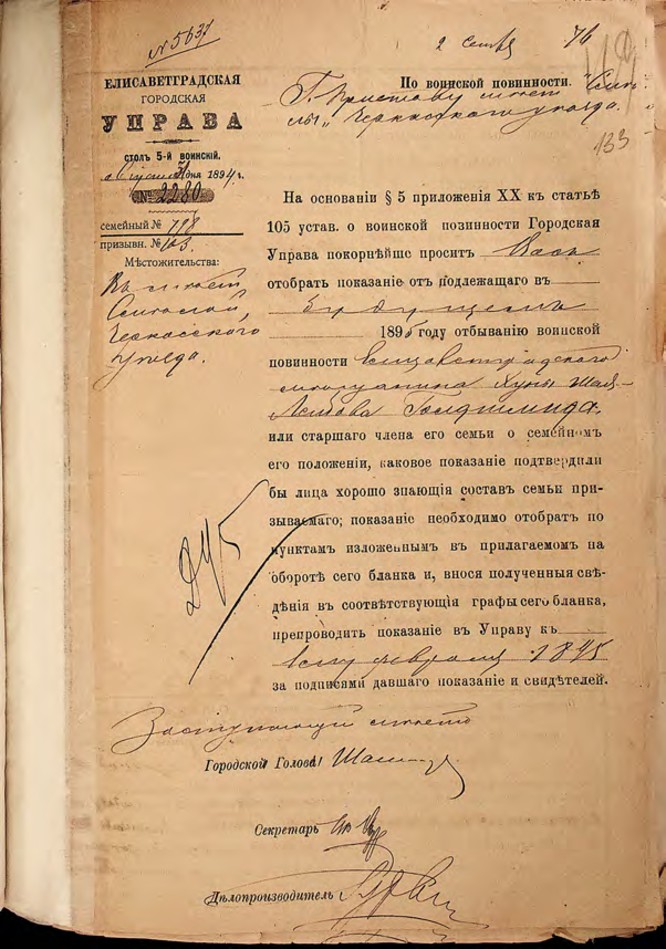 № 5637
2 76
ЕЛИСАВЕТГРАДСКАЯ
ГОРОДСКАЯ
УПРАВА
столъ 5-й воинскій.
31 дня 1894 г.
№ 2280
семейный № 798
призывн. № 103.
Мѣстожительства:
Въ мѣст.
Смѣлой,
Черкасскаго
уѣзда.
По воинской повинности.
Г. Приставу мѣст. „Смѣ-
лы„ Черкасскаго уѣзда.
133
На основаніи § 5 приложенія XX къ статьѣ
105 устав. о воинской позинности Городская
Управа покорнѣйше проситъ Васъ
отобрать показаніе отъ подлежащаго въ
будущемъ
1895 году отбыванію воинской
повинности Елисаветградскаго
мѣщанина Хуны Шая-
Лейбова Гольдшмида.
или старшаго члена его семьи о семейномъ
его положеніи, каковое показаніе подтвердили
бы лица хорошо знающія составъ семьи при-
зываемаго; показаніе необходимо отобрать по
пунктамъ изложеннымъ въ прилагаемомъ на
оборотѣ сего бланка и, внося полученныя свѣ-
дѣнія въ соотвѣтствующія графы сего бланка,
препроводить показаніе въ Управу къ
1му февраля 1895
за подписями давшаго показаніе и свидѣтелей.
Заступающій мѣсто
Городской Голова
Секретарь
Дѣлопроизводитель